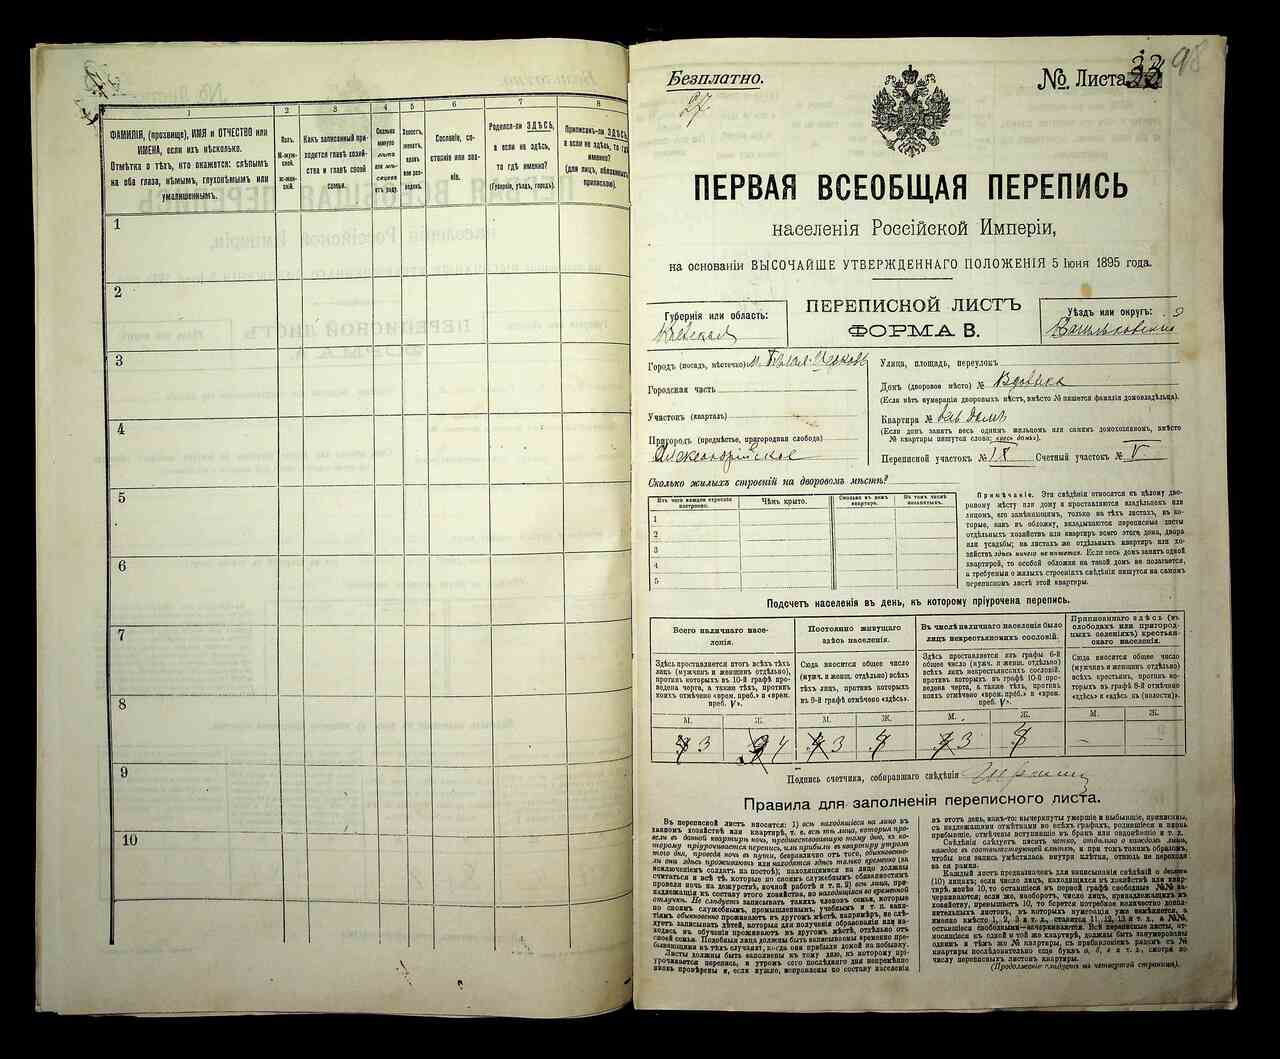 1
2
3
4
5
6
7
8
ФАМИЛІЯ, (прозвище), ИМЯ и ОТЧЕСТВО или
ИМЕНА, если ихъ нѣсколько.
Отмѣтка о тѣхъ, кто окажется: слѣпымъ
на оба глаза, нѣмымъ, глухонѣмымъ или
умалишеннымъ.
Полъ.
М-муж-
ской.
Ж-жен-
скій.
Какъ записанный при-
ходится главѣ хозяй-
ства и главѣ своей
семьи.
Сколько
минуло
лѣтъ
или мѣ-
сяцевъ
отъ роду.
Холостъ,
женатъ,
вдовъ
или раз-
веденъ.
Сословіе, со-
стояніе или зва-
ніе.
Родился-ли ЗДѢСЬ,
а если не здѣсь,
то гдѣ именно?
(Губернія, уѣздъ, городъ).
Приписанъ-ли ЗДѢСЬ,
а если не здѣсь, то гдѣ
именно?
(для лицъ, обязанныхъ
припискою).
1
2
3
4
5
6
7
8
9
10
Безплатно.
27
№ Листа
98
ПЕРВАЯ ВСЕОБЩАЯ ПЕРЕПИСЬ
населенія Россійской Имперіи,
на основаніи ВЫСОЧАЙШЕ УТВЕРЖДЕННАГО ПОЛОЖЕНІЯ 5 Іюня 1895 года.
Губернія или область:
Кіевская
ПЕРЕПИСНОЙ ЛИСТЪ
ФОРМА В.
Уѣздъ или округъ:
Васильковскій
Городъ (посадъ, мѣстечко) м. Бѣлая-Церковь
Городская часть
Участокъ (кварталъ)
Пригородъ (предмѣстье, пригородная слобода)
Александрійское
Улица, площадь, переулокъ
Домъ (дворовое мѣсто) № Вдовика
(Если нѣтъ нумераціи дворовыхъ мѣстъ, вмѣсто № пишется фамилія домовладѣльца).
Квартира № весь домъ
(Если домъ занятъ весь однимъ жильцомъ или самимъ домохозяиномъ, вмѣсто
№ квартиры пишутся слова: «весь домъ»).
Переписной участокъ № Счетный участокъ № V
Сколько жилыхъ строеній на дворовомъ мѣстѣ?
Изъ чего каждое строеніе
построено.
Чѣмъ крыто.
Сколько въ немъ
квартиръ.
Въ томъ числѣ
незанятыхъ.
1
2
3
4
5
Примѣчаніе. Эти свѣдѣнія относятся къ цѣлому дво-
ровому мѣсту или дому и проставляются владѣльцемъ или
лицомъ, его замѣняющимъ, только на тѣхъ листахъ, въ ко-
торые, какъ въ обложку, вкладываются переписные листы
отдѣльныхъ хозяйствъ или квартиръ всего этого дома, двора
или усадьбы; на листахъ же отдѣльныхъ квартиръ или хо-
зяйствъ здѣсь ничего не пишется. Если весь домъ занятъ одной
квартирой, то особой обложки на такой домъ не полагается,
а требуемыя о жилыхъ строеніяхъ свѣдѣнія пишутся на самомъ
переписномъ листѣ этой квартиры.
Подсчетъ населенія въ день, къ которому пріурочена перепись.
Всего наличнаго насе-
ленія.
Постоянно живущаго
здѣсь населенія.
Въ числѣ наличнаго населенія было
лицъ некрестьянскихъ сословій.
Приписаннаго здѣсь (въ
слободахъ или пригород-
ныхъ селеніяхъ) крестьян-
скаго населенія.
Здѣсь проставляется итогъ всѣхъ тѣхъ
лицъ (мужчинъ и женщинъ отдѣльно),
противъ которыхъ въ 10-й графѣ про-
ведена черта, а также тѣхъ, противъ
коихъ отмѣчено «врем. преб.» и «врем.
преб. V».
Сюда вносится общее число
(мужч. и женщ. отдѣльно) всѣхъ
тѣхъ лицъ, противъ которыхъ
въ 9-й графѣ отмѣчено «здѣсь».
Здѣсь проставляется изъ графы 6-й
общее число (мужч. и женщ. отдѣльно)
всѣхъ лицъ некрестьянскихъ сословій,
противъ которыхъ въ графѣ 10-й прове-
дена черта, а также тѣхъ, противъ коихъ
отмѣчено «врем. преб.» и «врем. преб. V».
Сюда вносится общее число
(мужчинъ и женщинъ отдѣльно)
всѣхъ крестьянъ, противъ ко-
торыхъ въ графѣ 8-й отмѣчено
«здѣсь» и «здѣсь въ (волости)».
М. Ж. М. Ж. М. Ж. М. Ж.
3 4 3 4 3 4 – –
Подпись счетчика, собиравшаго свѣдѣнія
Правила для заполненія переписного листа.
Въ переписной листъ вносятся: 1) всѣ находящіеся на лицо въ
данномъ хозяйствѣ или квартирѣ, т. е. всѣ тѣ лица, которыя про-
вели въ данной квартирѣ ночь, предшествовавшую тому дню, къ ко-
торому пріурочивается перепись, или прибыли въ квартиру утромъ
того дня, проведя ночь въ пути, безразлично отъ того, обыкновенно-
ли они здѣсь проживаютъ или находятся здѣсь только временно (за
исключеніемъ солдатъ на постоѣ); находящимися на лицо должны
считаться и всѣ тѣ, которые по своимъ служебнымъ обязанностямъ
провели ночь на дежурствѣ, ночной работѣ и т. п. 2) всѣ лица, при-
надлежащія къ составу этого хозяйства, но находящіяся во временной
отлучкѣ. Не слѣдуетъ записывать такихъ членовъ семьи, которые
по своимъ служебнымъ, промышленнымъ, учебнымъ и т. п. заня-
тіямъ обыкновенно проживаютъ въ другомъ мѣстѣ, напримѣръ, не слѣ-
дуетъ записывать дѣтей, которыя для полученія образованія или на-
ходясь въ обученіи проживаютъ въ другомъ мѣстѣ, отдѣльно отъ
своей семьи. Подобныя лица должны быть записываемы временно пре-
бывающими въ тѣхъ случаяхъ, когда они прибыли домой на побывку.
Листы должны быть заполнены къ тому дню, къ которому прі-
урочивается перепись, и утромъ сего послѣдняго дня непремѣнно
вновь провѣрены и, если нужно, исправлены по составу населенія
въ этотъ день, какъ-то: вычеркнуты умершіе и выбывшіе, приписаны,
съ надлежащими отмѣтками во всѣхъ графахъ, родившіеся и вновь
прибывшіе, отмѣчены вступившіе въ бракъ или овдовѣвшіе и т. д.
Свѣдѣнія слѣдуетъ писать четко, отдѣльно о каждомъ лицѣ,
каждое въ соотвѣтствующей клѣткѣ, и при томъ такимъ образомъ,
чтобы вся запись умѣстилась внутри клѣтки, отнюдь не переходя
за ея рамки.
Каждый листъ предназначенъ для записыванія свѣдѣній о десяти
(10) лицахъ; если число лицъ, находящихся въ хозяйствѣ или квар-
тирѣ, менѣе 10, то оставшіеся въ первой графѣ свободные №№ за-
черкиваются; если же, наоборотъ, число лицъ, принадлежащихъ къ
хозяйству, превышаетъ 10, то берется потребное количество допол-
нительныхъ листовъ, въ которыхъ нумерація уже измѣняется, а
именно вмѣсто 1, 2, 3 и т. д. ставится 11, 12, 13 и т. д., а №№,
оставшіеся свободными—зачеркиваются. Всѣ переписные листы, от-
носящіеся къ одной и той же квартирѣ, должны быть занумерованы
однимъ и тѣмъ же № квартиры, съ прибавленіемъ рядомъ съ №
квартиры послѣдовательно еще буквъ а, б, в и т. д., смотря по
числу переписныхъ листовъ квартиры.
(Продолженіе слѣдуетъ на четвертой страницѣ).